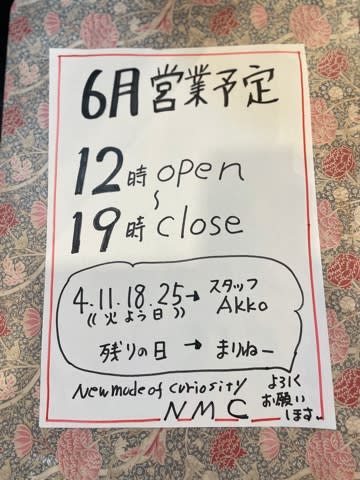 6月営業予定
12時open
～
19時close
4.11.18.25→スタッフ Akko
((火よう日))
残りの日→まりねー
New mode of curiosity
NMC
よろしく
お願い
します。